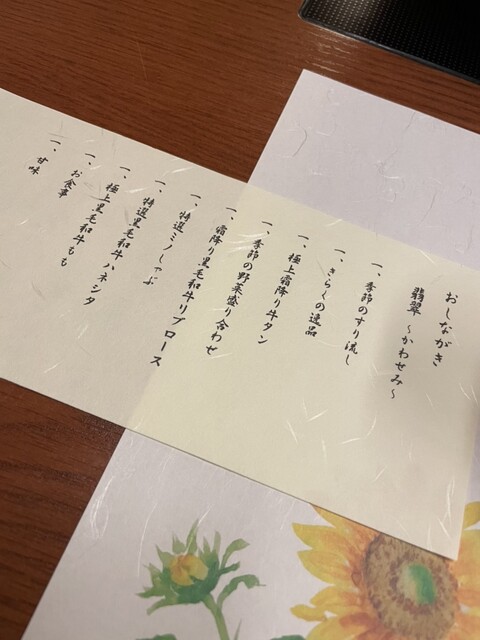 おしながき
翡翠 ～かわせみ～
一、季節のすり流し
一、きらくの逸品
一、極上霜降り牛タン
一、季節の野菜盛り合わせ
一、霜降り黒毛和牛リブロース
一、特選ミノしゃぶ
一、特選黒毛和牛ハネシタ
一、極上黒毛和牛もも
一、お食事
一、甘味